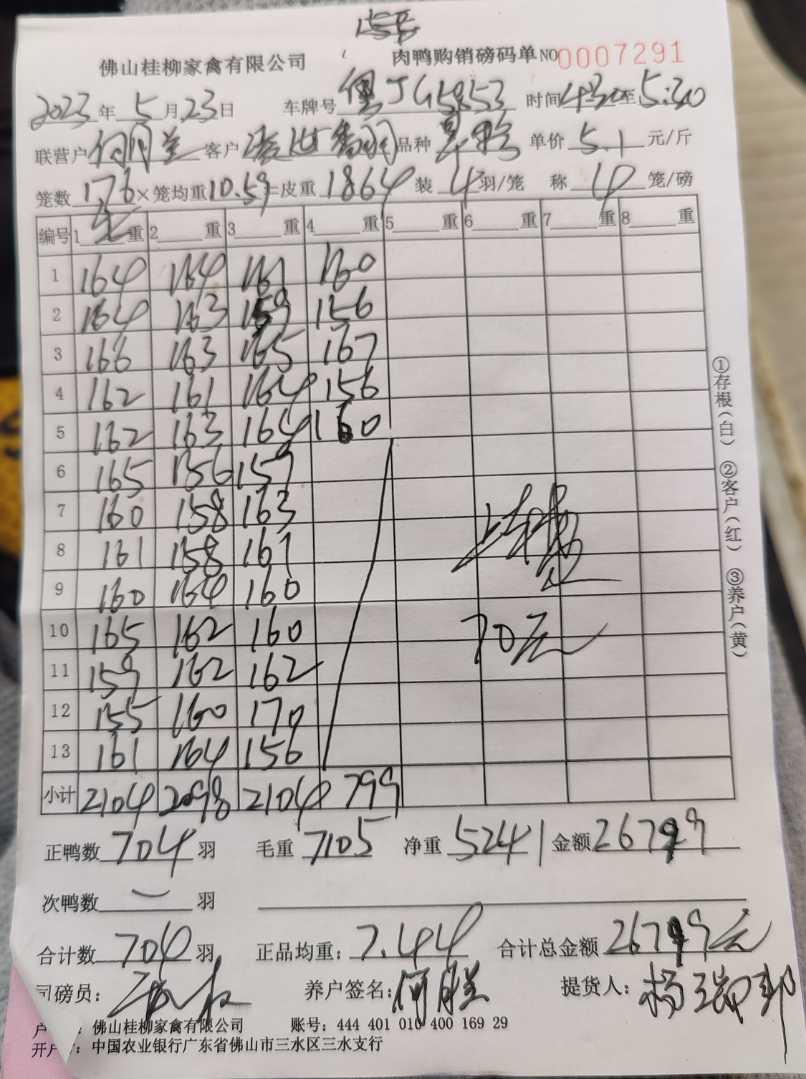 佛山桂柳家禽有限公司 肉鸭购销磅码单 NO 0007291
2023年5月23日 车牌号 JG5853 时间4:30至5:30
联营户 何月兰 客户 品种 单价 5.1 元/斤
笼数 176 × 笼均重 10.59 = 皮重 1864 装 4 羽/笼 称 4 笼/磅
编号 1 重 2 重 3 重 4 重 5 重 6 重 7 重 8 重
1 164 164 161 160
2 164 163 159 156
3 166 163 165 167
4 162 161 164 156
5 162 163 164 160
6 165 156 159
7 160 158 163
8 161 158 161
9 160 164 160
10 165 162 160
11 159 162 162
12 155 160 170
13 161 164 156
70元
小计 2104 2098 2104 799
①存根(白) ②客户(红) ③养户(黄)
正鸭数 704 羽 毛重 7105 净重 5241 金额 26729
次鸭数 一 羽
合计数 704 羽 正品均重: 7.44 合计总金额 26729元
司磅员: 养户签名: 何月兰 提货人: 杨
户 佛山桂柳家禽有限公司 账号: 444 401 010 400 169 29
开户 : 中国农业银行广东省佛山市三水区三水支行